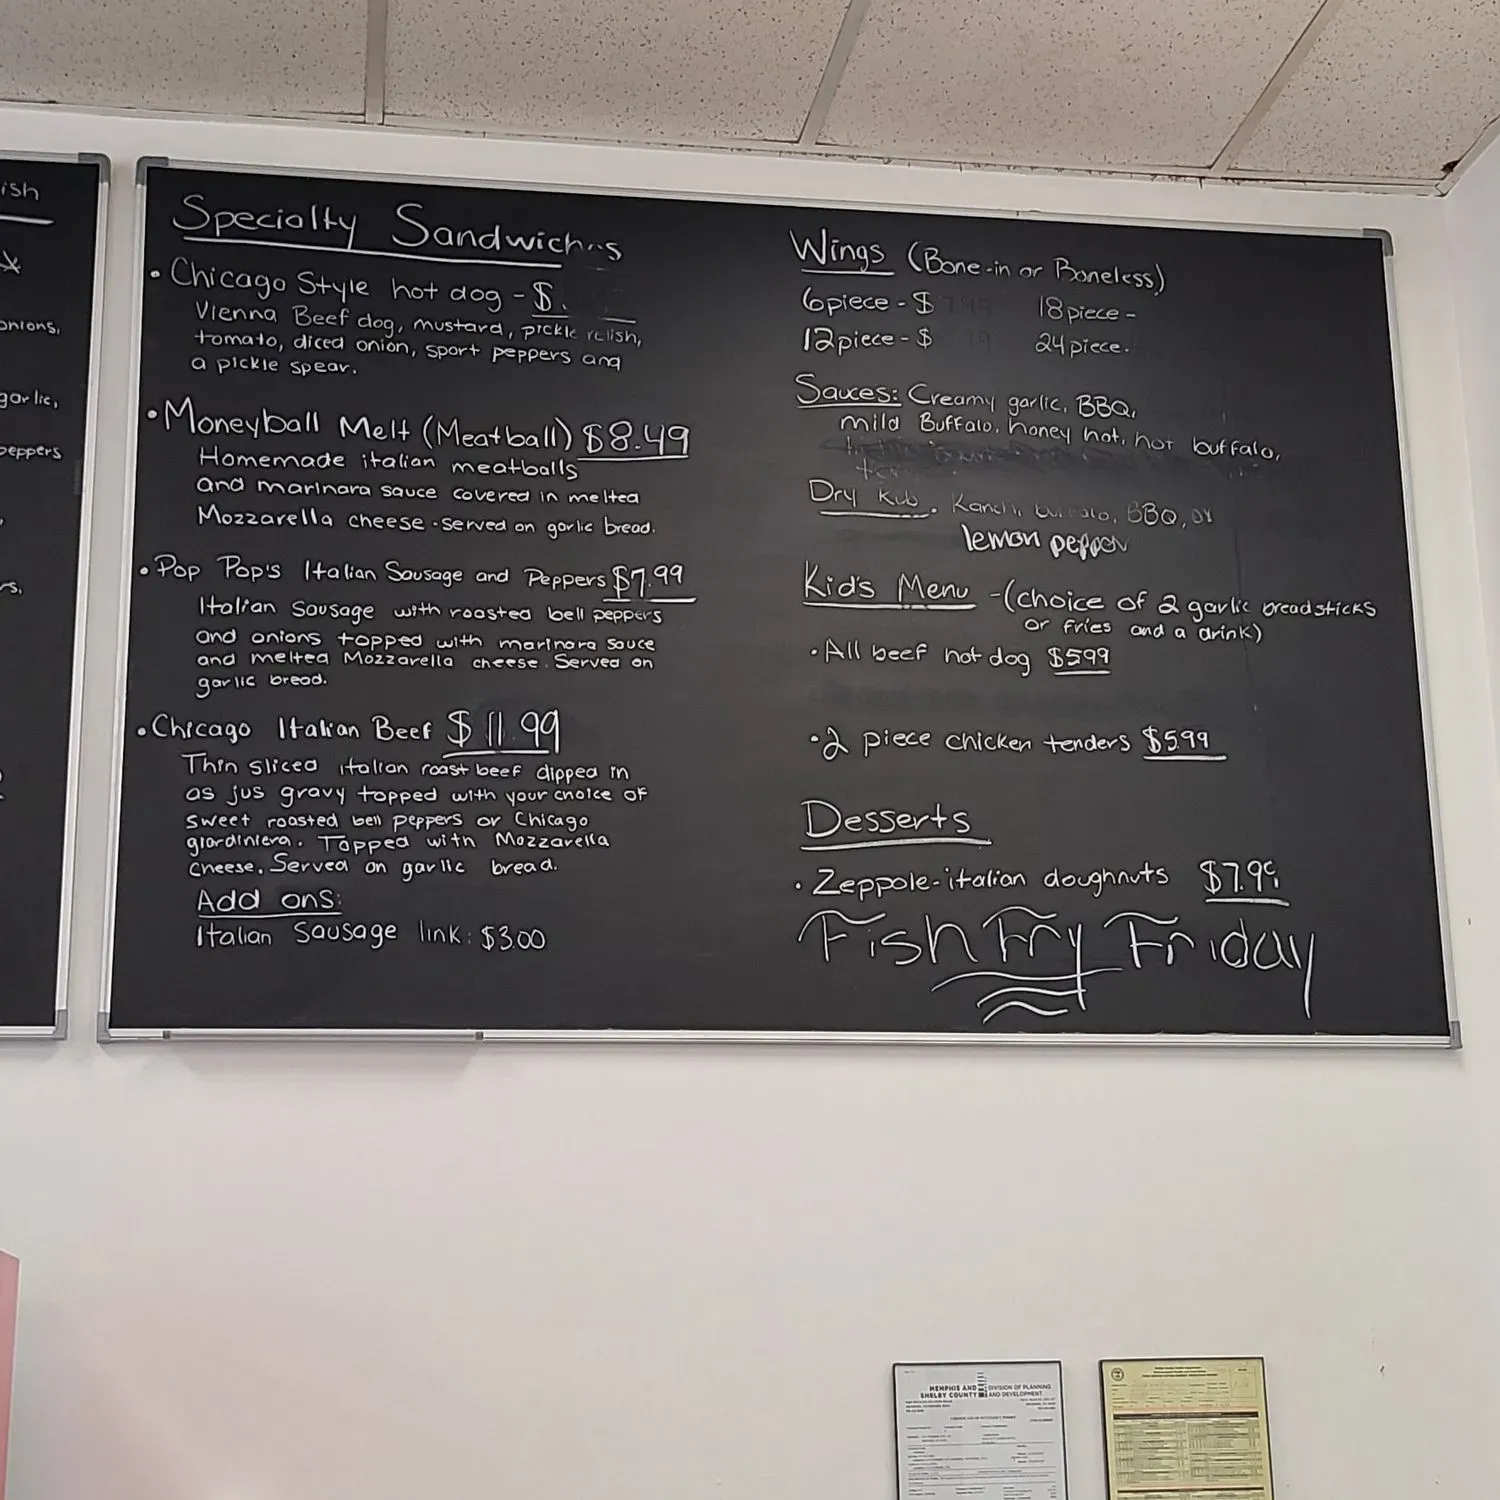 ish
onions,
garlic,
peppers
Specialty Sandwiches
• Chicago Style hot dog - $.
Vienna Beef dog, mustard, pickle relish,
tomato, diced onion, sport peppers and
a pickle spear.
• Moneyball Melt (Meatball) $8.49
Homemade italian meatballs
and marinara sauce covered in melted
Mozzarella cheese. served on garlic bread.
• Pop Pop's Italian Sausage and Peppers $7.99
Italian Sausage with roasted bell peppers
and onions topped with marinara sauce
and melted Mozzarella cheese. Served on
garlic bread.
• Chicago Italian Beef $11.99
Thin sliced italian roast beef dipped in
as jus gravy topped with your choice of
sweet roasted bell peppers or Chicago
giardiniera. Topped with Mozzarella
cheese. Served on garlic bread.
Add ons:
Italian Sausage link: $3.00
Wings (Bone-in or Boneless)
6piece - $ 18piece -
12piece - $ 24piece.
Sauces: Creamy garlic, BBQ,
mild Buffalo, honey hot, hot buffalo,
Dry Rub. Ranch, buffalo, BBQ, or
lemon pepper
Kid's Menu - (choice of 2 garlic breadsticks
or fries and a drink)
• All beef hot dog $5.99
• 2 piece chicken tenders $5.99
Desserts
• Zeppole - italian doughnuts $7.99
Fish Fry Friday
MEMPHIS AND SHELBY COUNTY
DIVISION OF PLANNING AND DEVELOPMENT